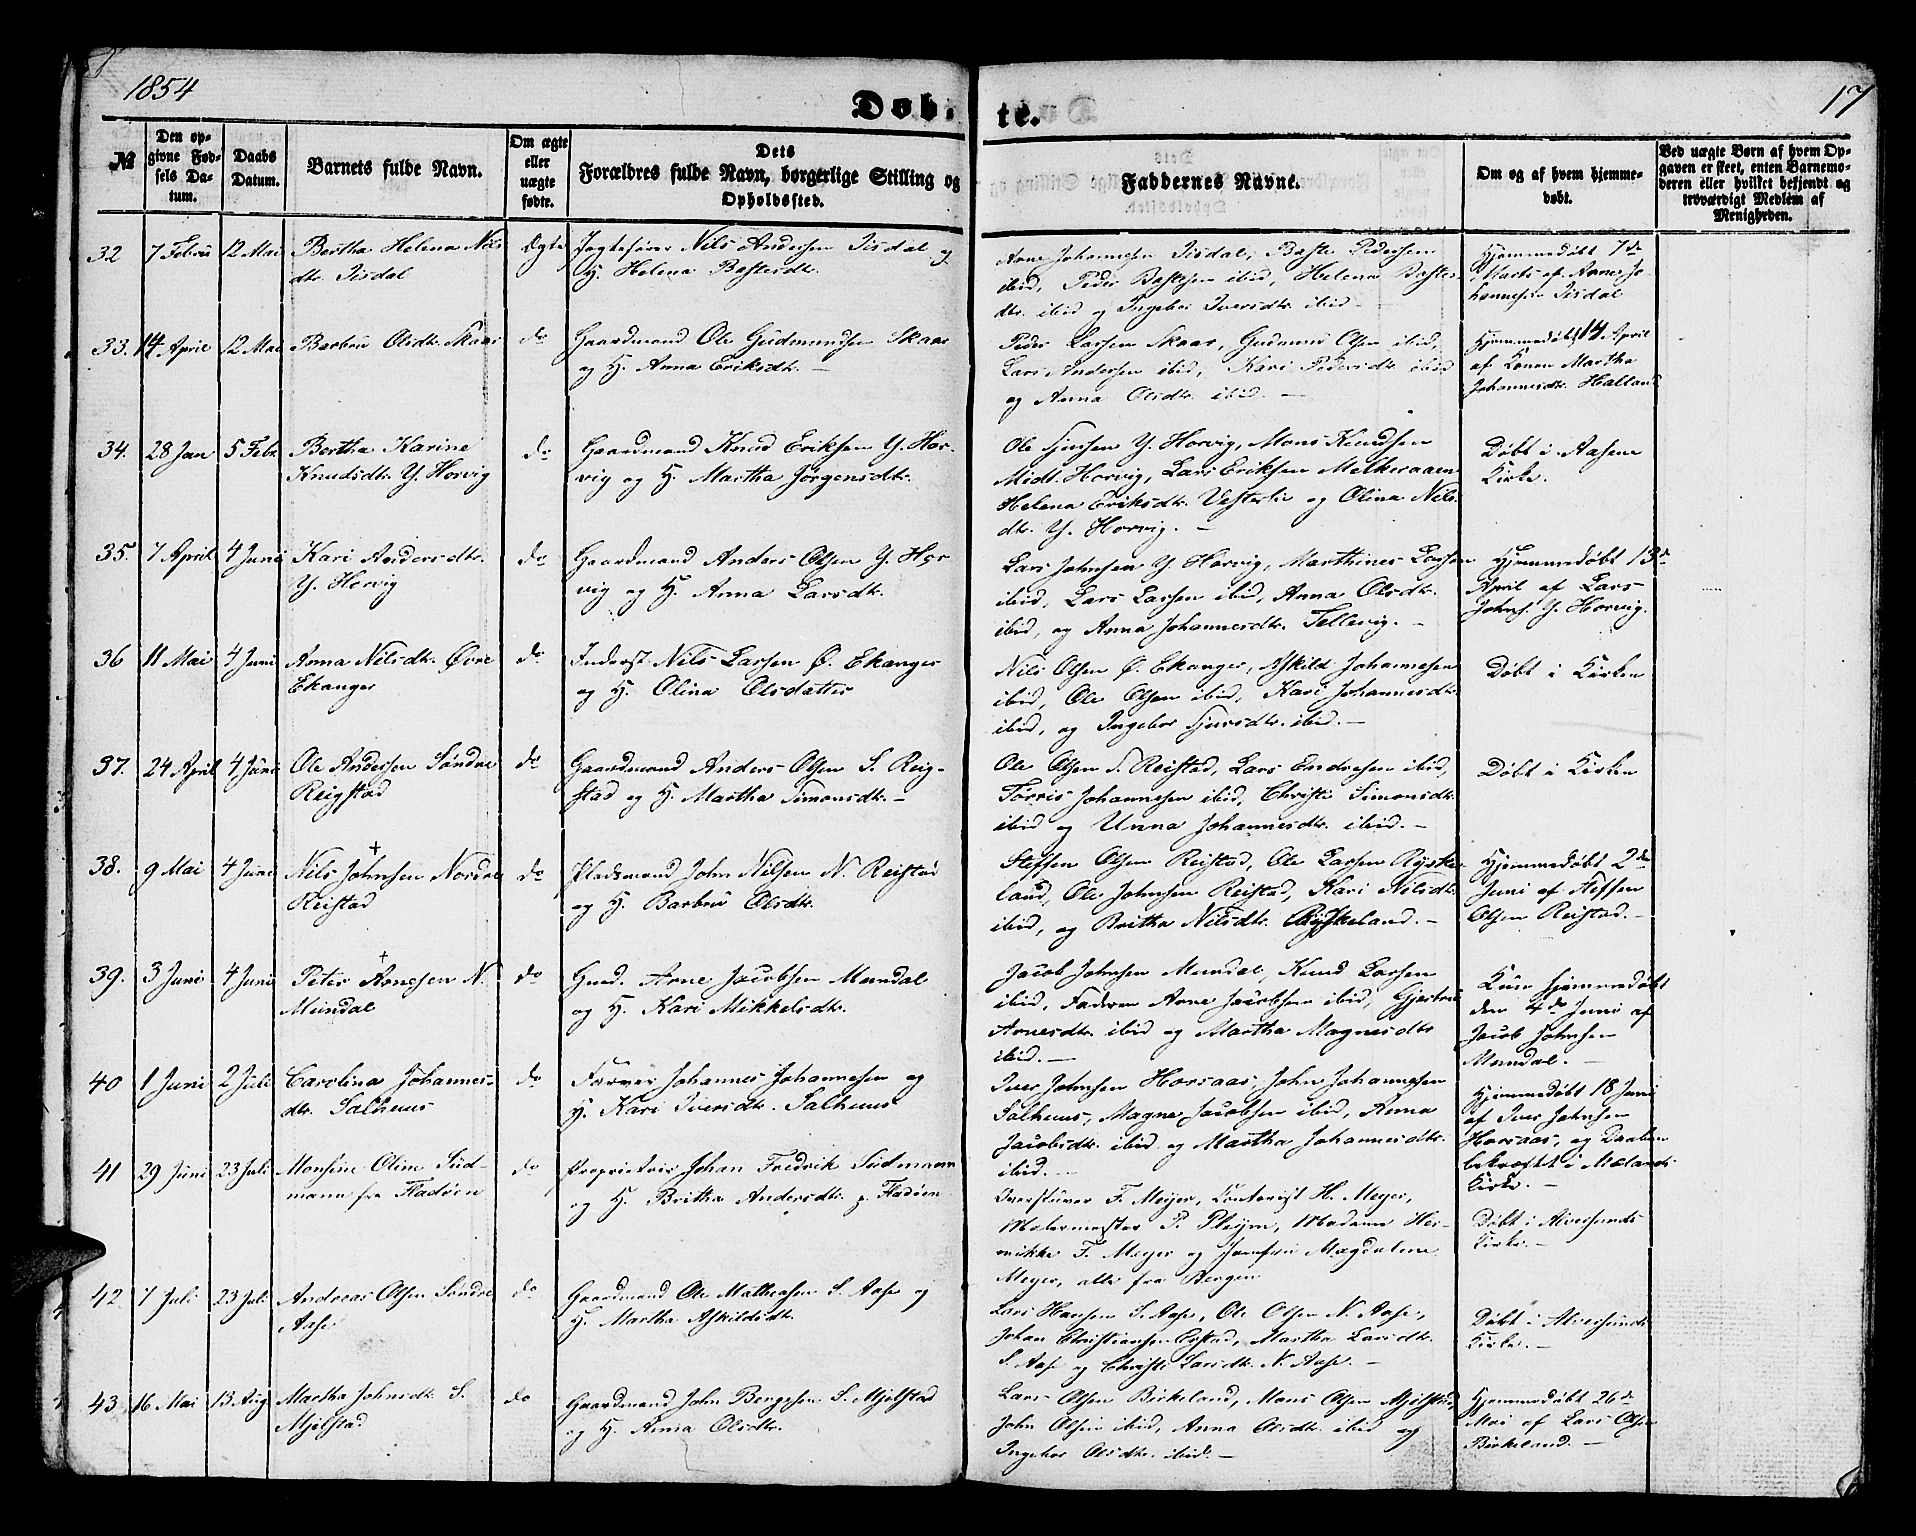 1854
17
Døb-
te.
№
Den op-
givne Fød-
sels Da-
tum.
Daabs
Datum.
Barnets fulde Navn.
Om ægte
eller
uægte
født.
Dets
Forældres fulde Navn, borgerlige Stilling og
Opholdssted.
Faddernes Navne.
Om og af hvem hjemme-
døbt.
Ved uægte Børn af hvem Op-
gaven er skeet, enten Barnemo-
deren eller hvilket bekjendt og
troværdigt Medlem af
Menigheden.
32
7 Febru
12 Mai
Bertha Helena Nils
dtr. Isdal
Ægte
Jægtefører Nils Andersen Isdal og
H. Helena Bastesdtr.
Arne Johannesen Isdal, Baste Pedersen
ibid, Peder Bastesen ibid, Helena Bastes-
dtr. ibid og Ingebor Iversdtr. ibid. –
Hjemmedøbt 7de
Marts af Arne Jo-
hannesen Isdal
33.
14 April
12 Mai
Barbru Olsdtr. Skaar
do
Gaardmand Ole Gudmundsen Skaar
og H. Anna Eriksdtr. –
Peder Larsen Skaar, Gudmun Olsen ibid,
Lars Andersen ibid, Kari Pedersdtr. ibid
og Anna Olsdtr. ibid. –
Hjemmedøbt 14 April
af Konen Martha
Johannesdtr. Halland
34.
28 Jan
5 Febr.
Bertha Karine
Knudsdtr. Y. Horvig
do
Gaardmand Knud Eriksen Y. Hor-
vig og H. Martha Jørgensdtr.
Ole Sjursen Y. Horvig, Mons Knudsen
Midt. Horvig, Lars Eriksen Melkeraaen
Helena Eriksdtr. Vesterlie og Olina Nils
dtr. Y. Horvig. –
Døbt i Aasene
Kirke.
35.
7 April
4 Juni
Kari Andersdtr.
Y. Horvig
do
Gaardmand Anders Olsen Y. Hor
vig og H. Anna Larsdtr.
Lars Johnsen Y. Horvig, Marthines Larsen
ibid, Lars Larsen ibid, Anna Olsdtr.
ibid, og Anna Johannesdtr. Tellevig. –
Hjemmedøbt 13de
April af Lars
Johns. Y. Horvig.
36
11 Mai
4 Juni
Anna Nilsdtr. Øvre
Ekanger
do
Inderst Nils Larsen Ø. Ekanger
og H. Olina Olsdatter
Nils Olsen Ø. Ekanger, Askild Johannesen
ibid, Ole Olsen ibid, Kari Johannesdtr.
ibid, og Ingebor Sjursdtr. ibid. –
Døbt i Kirken
37.
24 April
4 Juni
Ole Andersen Søndre
Reigstad
do
Gaardmand Anders Olsen S. Reig-
stad og H. Martha Simonsdtr. –
Ole Olsen S. Reistad, Lars Endresen ibid,
Torris Johannesen ibid, Christi Simonsdtr.
ibid og Unna Johannesdtr. ibid. –
Døbt i Kirken
38.
9 Mai
4 Juni
+
Nils Johnsen Nordre
Reistad
do
Pladsmand John Nilsen N. Reistad
og H. Barbru Olsdtr.
Steffen Olsen Reistad, Ole Larsen Ryske-
land, Ole Johnsen Reistad, Kari Nilsdtr.
ibid, og Britha Nilsdtr. Ryskeland. –
Hjemmedøbt 2den
Juni af Steffen
Olsen Reistad. –
39.
3 Juni
4 Juni
+
Peter Arnesen N.
Mundal
do
Gmd. Arne Jacobsen Mundal
og H. Kari Mikkelsdtr.
Jacob Johnsen Mundal, Knud Larsen
ibid, Faderen Arne Jacobsen ibid, Gjertru
Arnesdtr. ibid og Martha Magnesdtr
ibid. –
Kun hjemmedøbt
den 4de Juni af
Jacob Johnsen
Mundal. –
40
1 Juni
2 Juli
Carolina Johannes-
dtr. Salhuus
do
Farver Johannes Johannesen og
H. Kari Iversdtr. Salhuus
Iver Johnsen Horsaas, John Johannesen
Salhuus, Magne Jacobsen ibid, Anna
Jacobsdtr. ibid og Martha Johannesdtr.
ibid. –
Hjemmedøbt 18 Juni
af Iver Johnsen
Horsaas, og Daaben
bekræftet i Mælands
Kirke. –
41
29 Juni
23 Juli
Monsine Oline Süd-
mann fra Fladøen
do
Proprietair Johan Fredrik Südmann
og H. Britha Andersdtr. p. Fladøen
F. Meyer, Kontorist H. Meyer,
Malermester P. Madame Hen-
rikke F. Meyer og Jomfru Magdalene
Meyer, alle fra Bergen
Døbt i Alversunds
Kirke. –
42
7 Juli
23 Juli
Andreas Olsen Søndre
Aase
do
Gaardmand Ole Mathiasen S. Aase og
H. Martha Askildsdtr.
Lars Hansen S. Aase, Ole Olsen N. Aase,
Johan Christiansen Erstad, Martha Larsdtr.
S. Aase og Christi Larsdtr. N. Aase. –
Døbt i Alversunds
Kirke. –
43
16 Mai
13 Aug
Martha Johnsdtr. S.
Mjelstad
do
Gaardmand John Borgesen S. Mjelstad
og H. Anna Olsdtr.
Lars Olsen Birkeland, Mons Olsen Mjelstad,
John Olsen ibid, Anna Olsdtr. ibid og
Ingebor Olsdtr. ibid. –
Hjemmedøbt 26de
Mai af Lars Olsen
Birkeland. –